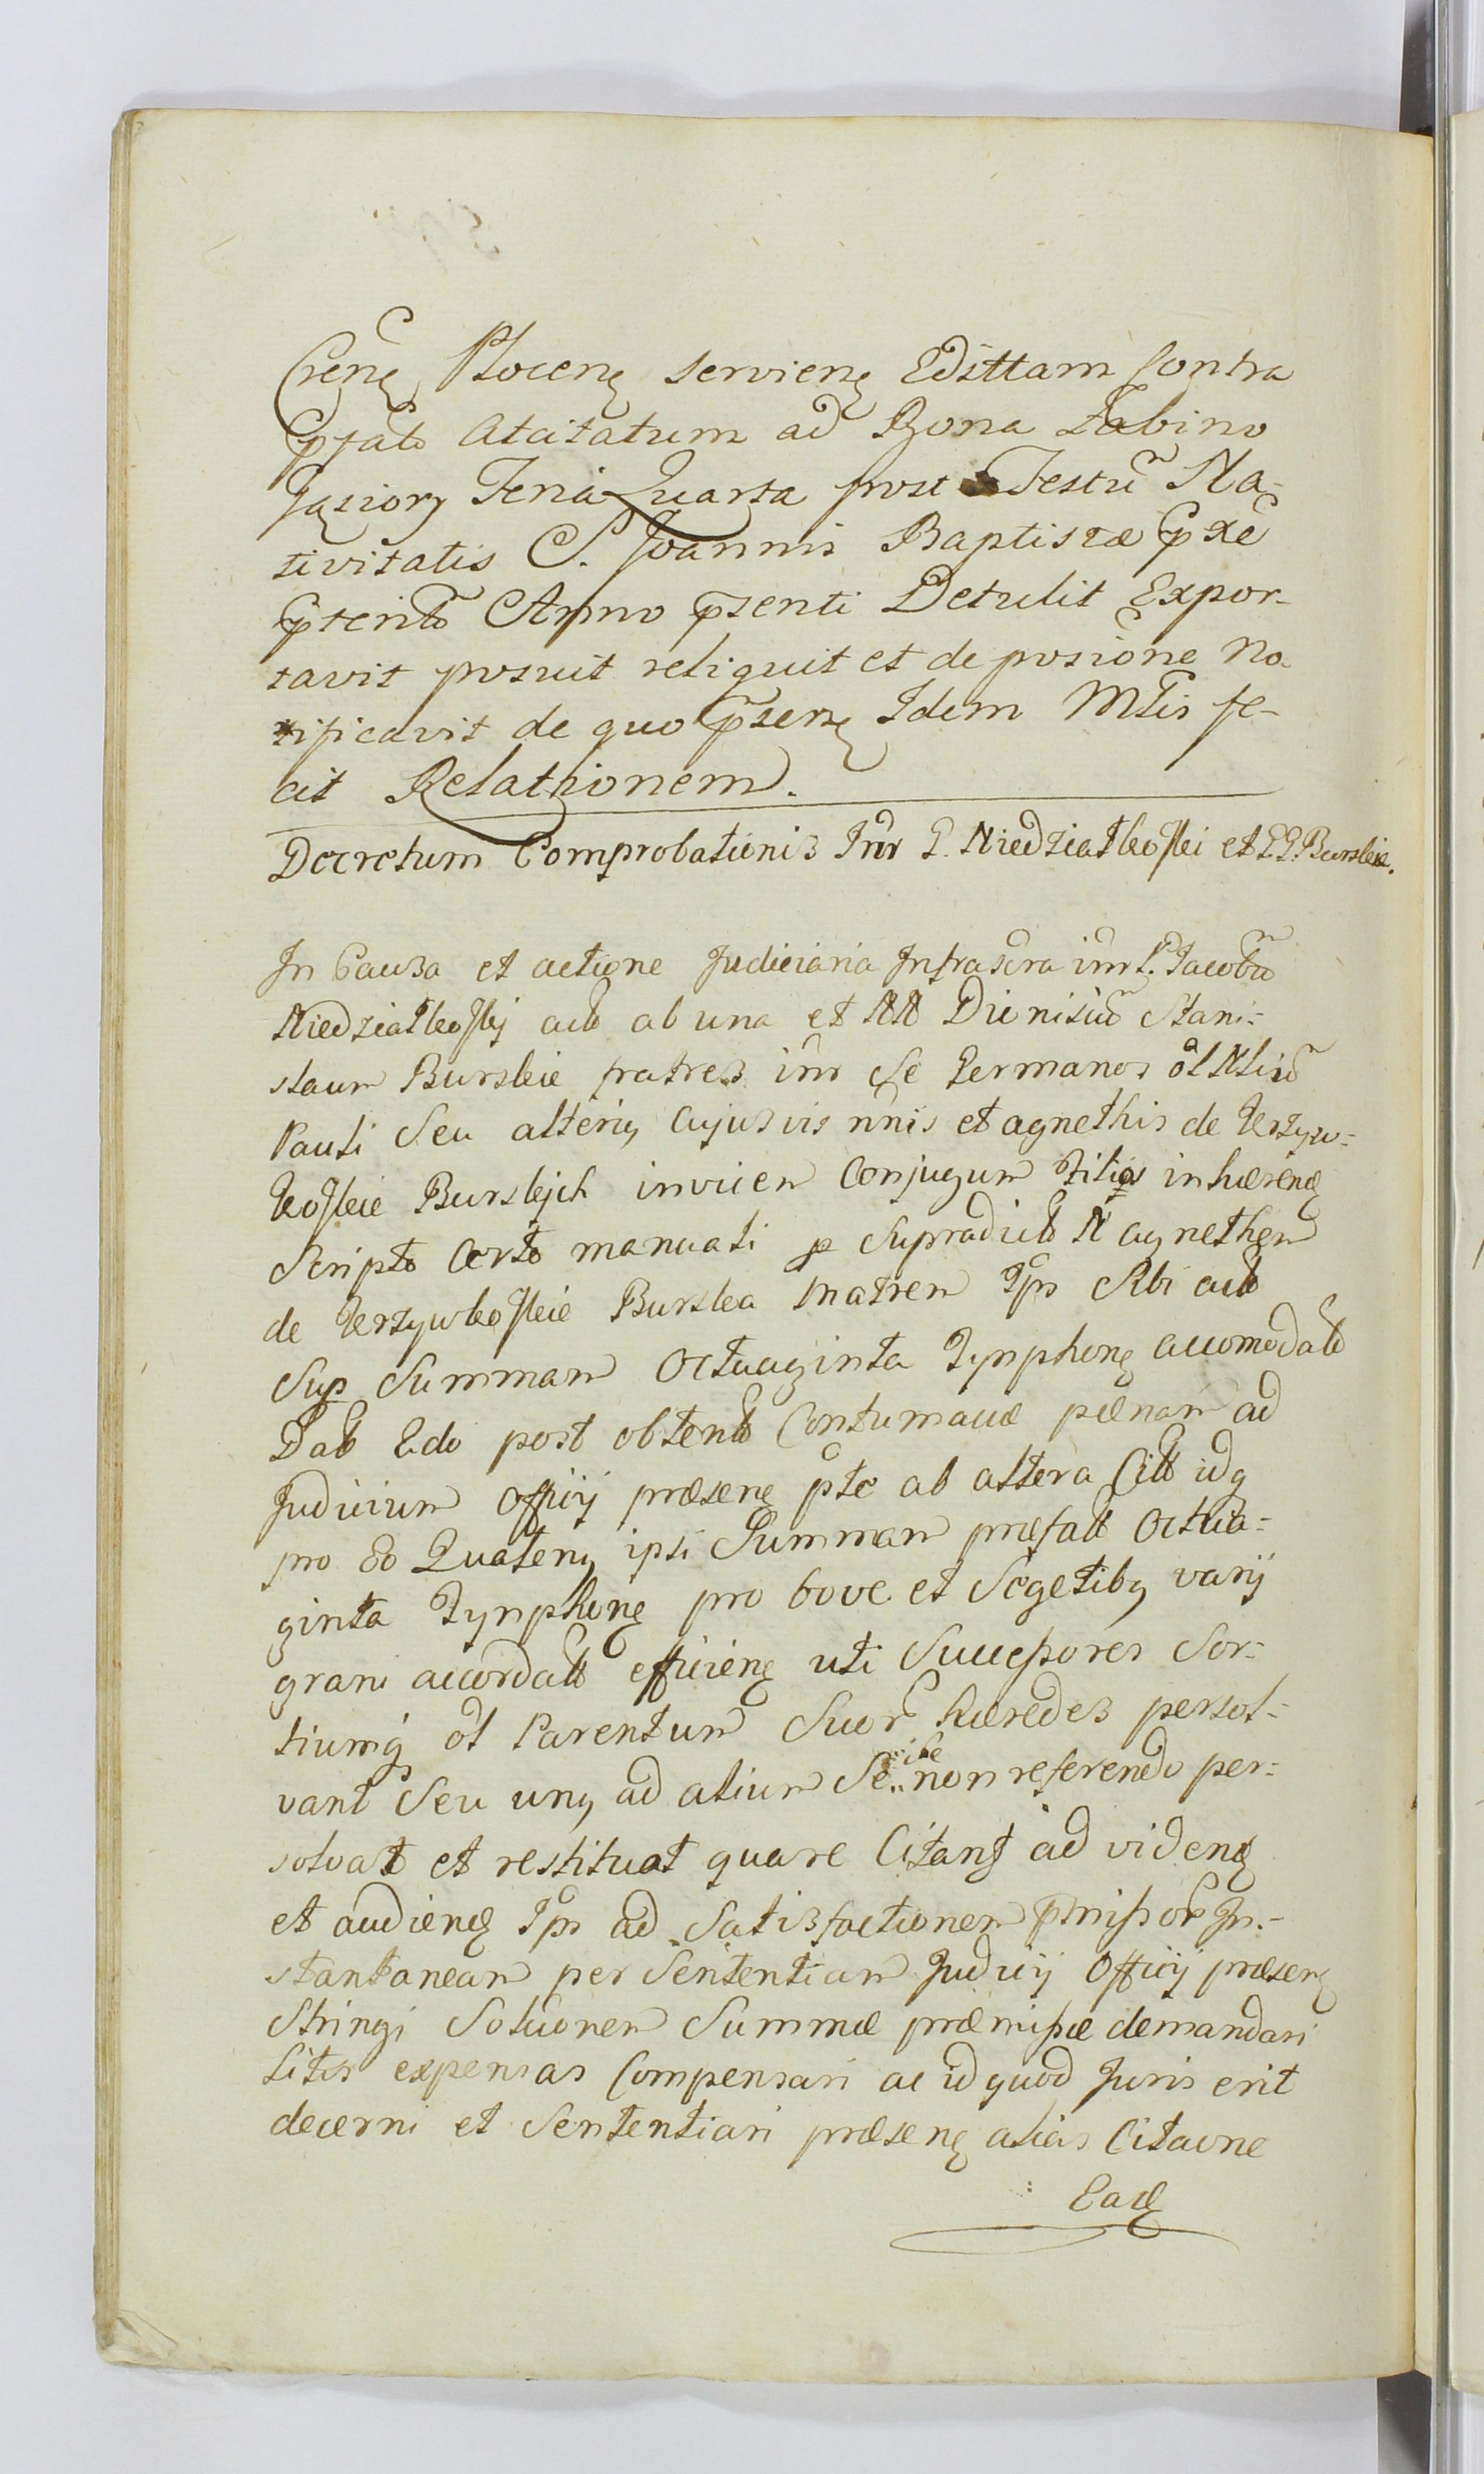 Crenẽ Plocenę servienę Edittam contra
p̃fato Atcitatum ad Bona Łabino
Gąsiory Feria Quarta post Festũ Na-
tivitatis S. Joannis Baptistæ p̃xe
p̃terito Anno p̃senti Detulit Expor-
tavit posuit reliquit et de posione no
tificavit de quo p̃senę Idem Mtis fe-
cit Relationem.
Decretum Comprobationis Intr G. Niedziałkoſki et GG. Burskie.
In Causa et actione Judiciaria Infrascra intr G. Jacobũ
Niedziałkoſkj act ab una et NN Dionisiũ Stani=
slaum Burskie fratres intr se Germanos ol Nliũ
Pauli Seu alterių cujusvis nnis et agnethis de Krzyw=
koſkie Burskjch invicem Conjugum filios inhærenę
Scripto Certo manuali p Supradict N agnethem
de Krzywkoſkie Burska matrem Ips Sibi act
Sup Summam Octuaginta Tynphonę accomodato
Dato Edo post obtento Contumaciæ pænam ad
Judicium Officij præsenę pte ab altera Citt idq
pro eo Quatenų ipsi Summam præfatt Octua=
ginta Tynphonę pro bove et Segetibų varij
grani accordatt efficienę uti Succeſsores Sor=
tiumq̃ ol Parentum Suor̃ hæredes persol=
vant Seu unų ad alium Se non referendo per=
solvat et restituat quare Citant ad videnę
et audienę Ips ad Satisfactionem p̃miſsor̃ In=
stantaneam per Sententiam Judicij Officij præsenę
Stringi Solucionem Summæ præmiſsæ demandari
Litis expensas Compensari ac id quod Juris erit
decerni et Sententiari præsenę alias Citaone
Eadę